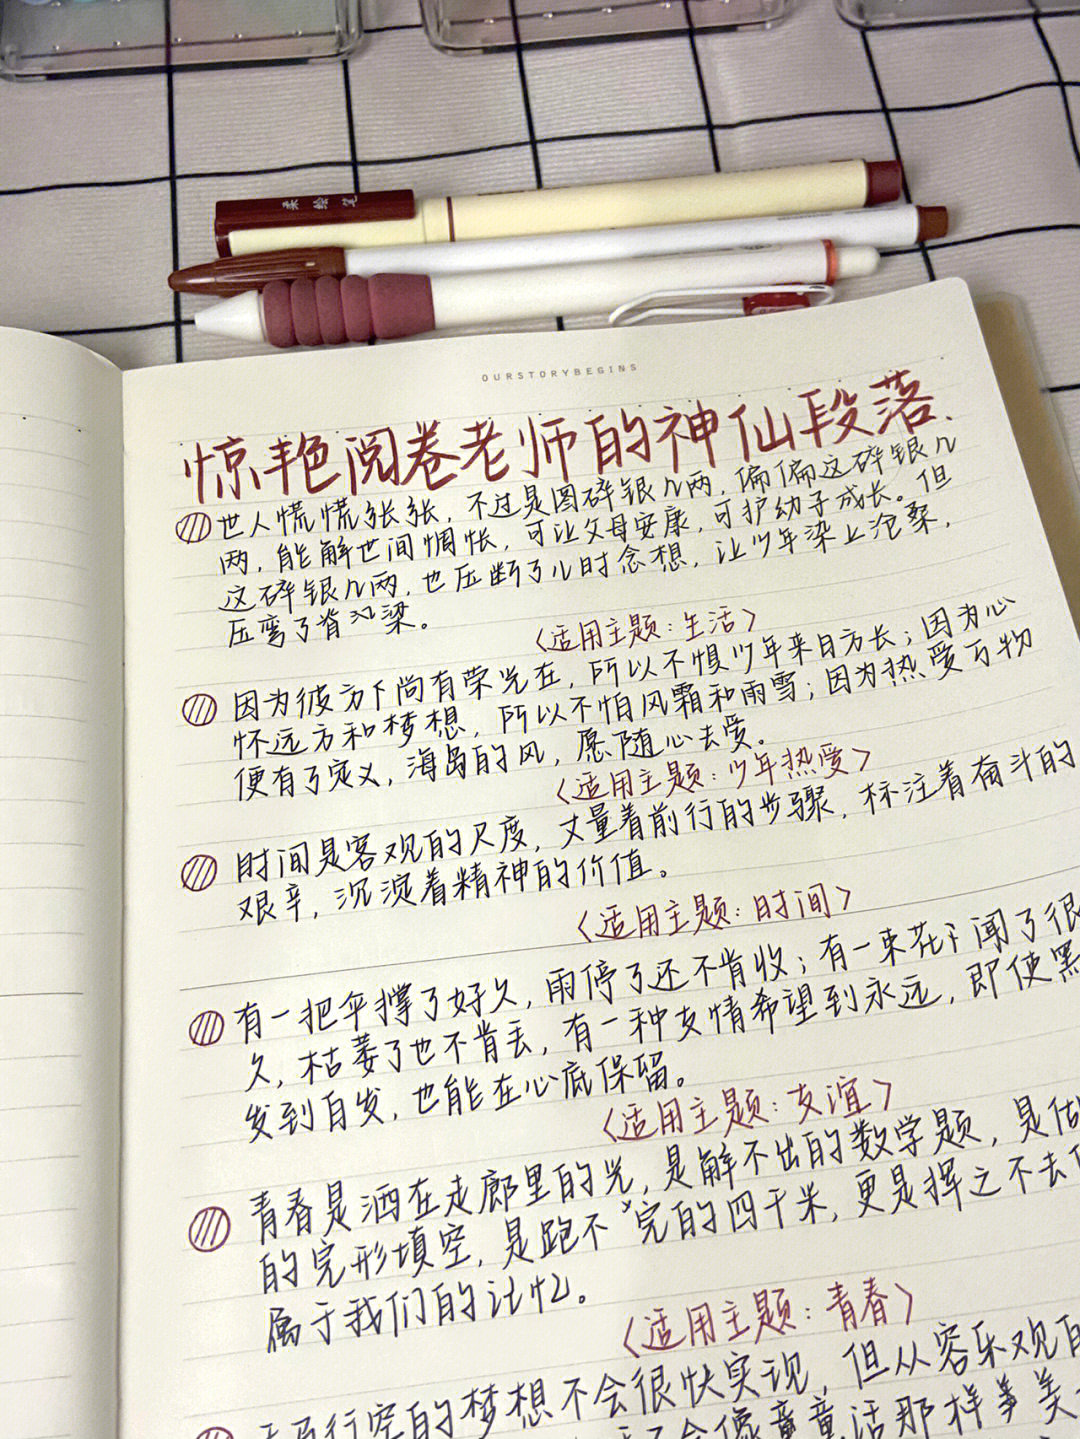 柔绘笔
OURSTORYBEGINS
惊艳阅卷老师的神仙段落.
世人慌慌张张，不过是图碎银几两，偏偏这碎银几
两，能解世间惆怅，可让父母安康，可护幼子成长。但
这碎银几两，也压断了儿时念想，让少年染上沧桑，
压弯了脊梁。
〈适用主题：生活〉
因为彼方下尚有荣光在，所以不惧少年来日方长；因为心
怀远方和梦想，所以不怕风霜和雨雪；因为热爱万物
便有了定义，海岛的风，愿随心去爱。
〈适用主题：少年热爱〉
时间是客观的尺度，丈量着前行的步骤，标注着奋斗的
艰辛，沉淀着精神的价值。
〈适用主题：时间〉
有一把伞撑了好久，雨停了还不肯收；有一束花下闻了很
久，枯萎了也不肯丢，有一种友情希望到永远，即使黑
发到白发，也能在心底保留。
〈适用主题：友谊〉
青春是洒在走廊里的光，是解不出的数学题，是做
的完形填空，是跑不完的四千米，更是挥之不去
属于我们的记忆。
〈适用主题：青春〉
行空的梦想不会很快实现，但从容乐观
会像童童话那样美